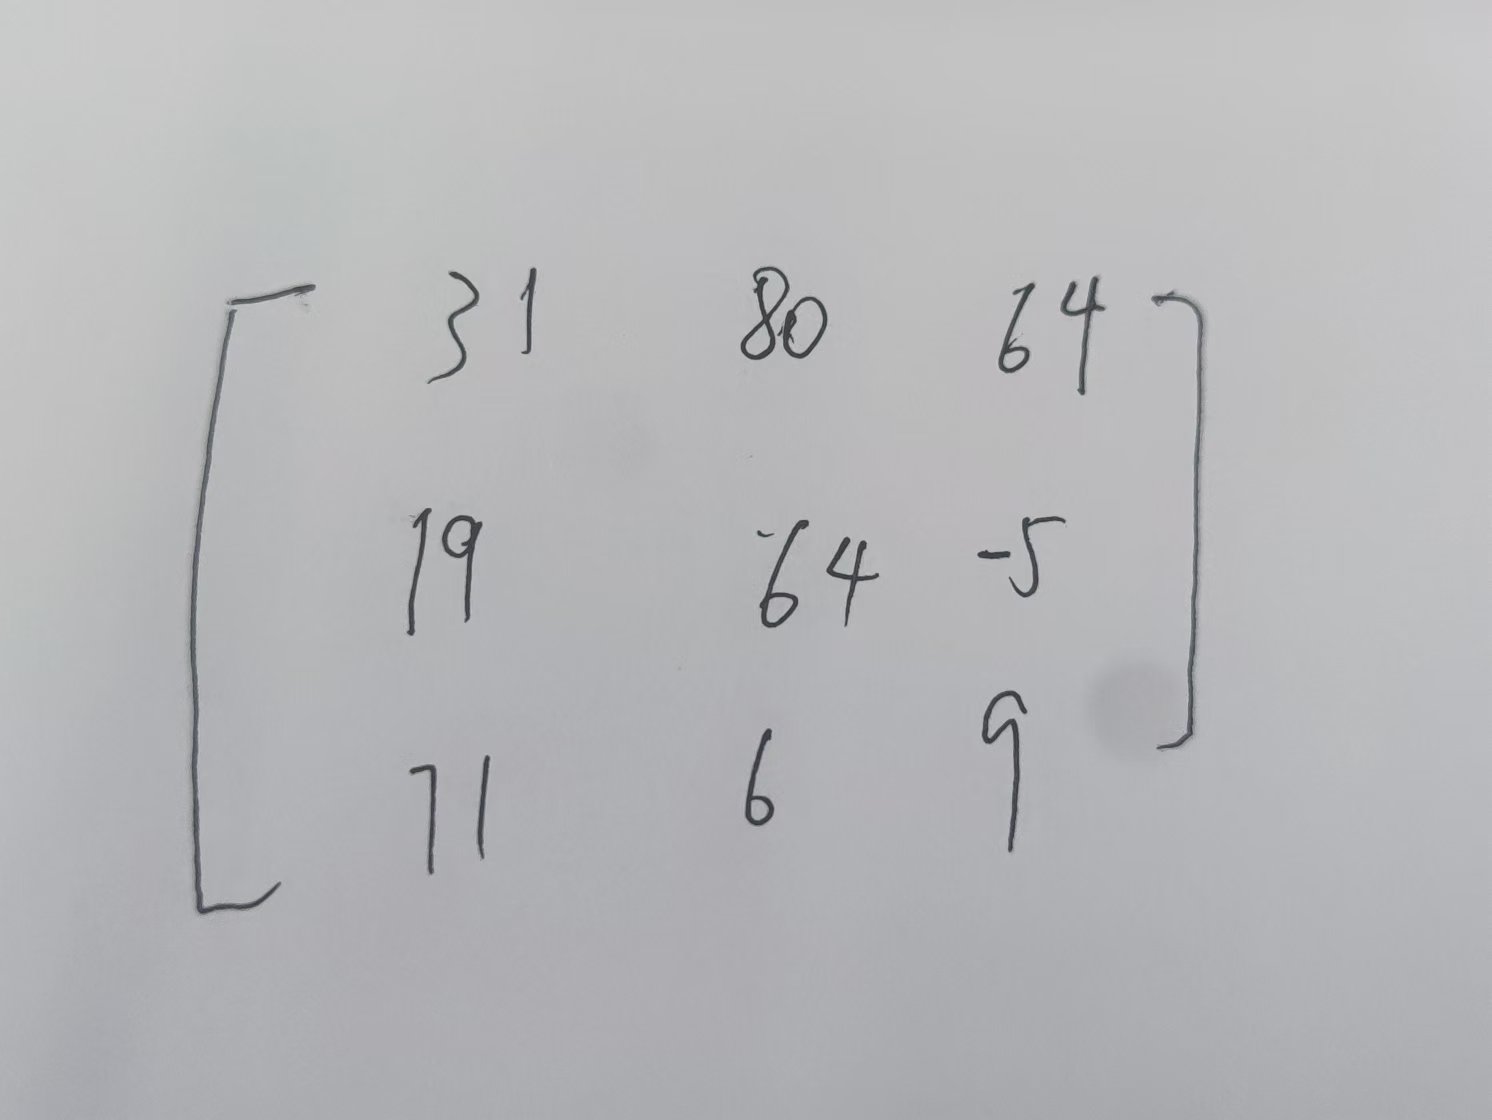 31 80 64
19 -64 -5
71 6 9